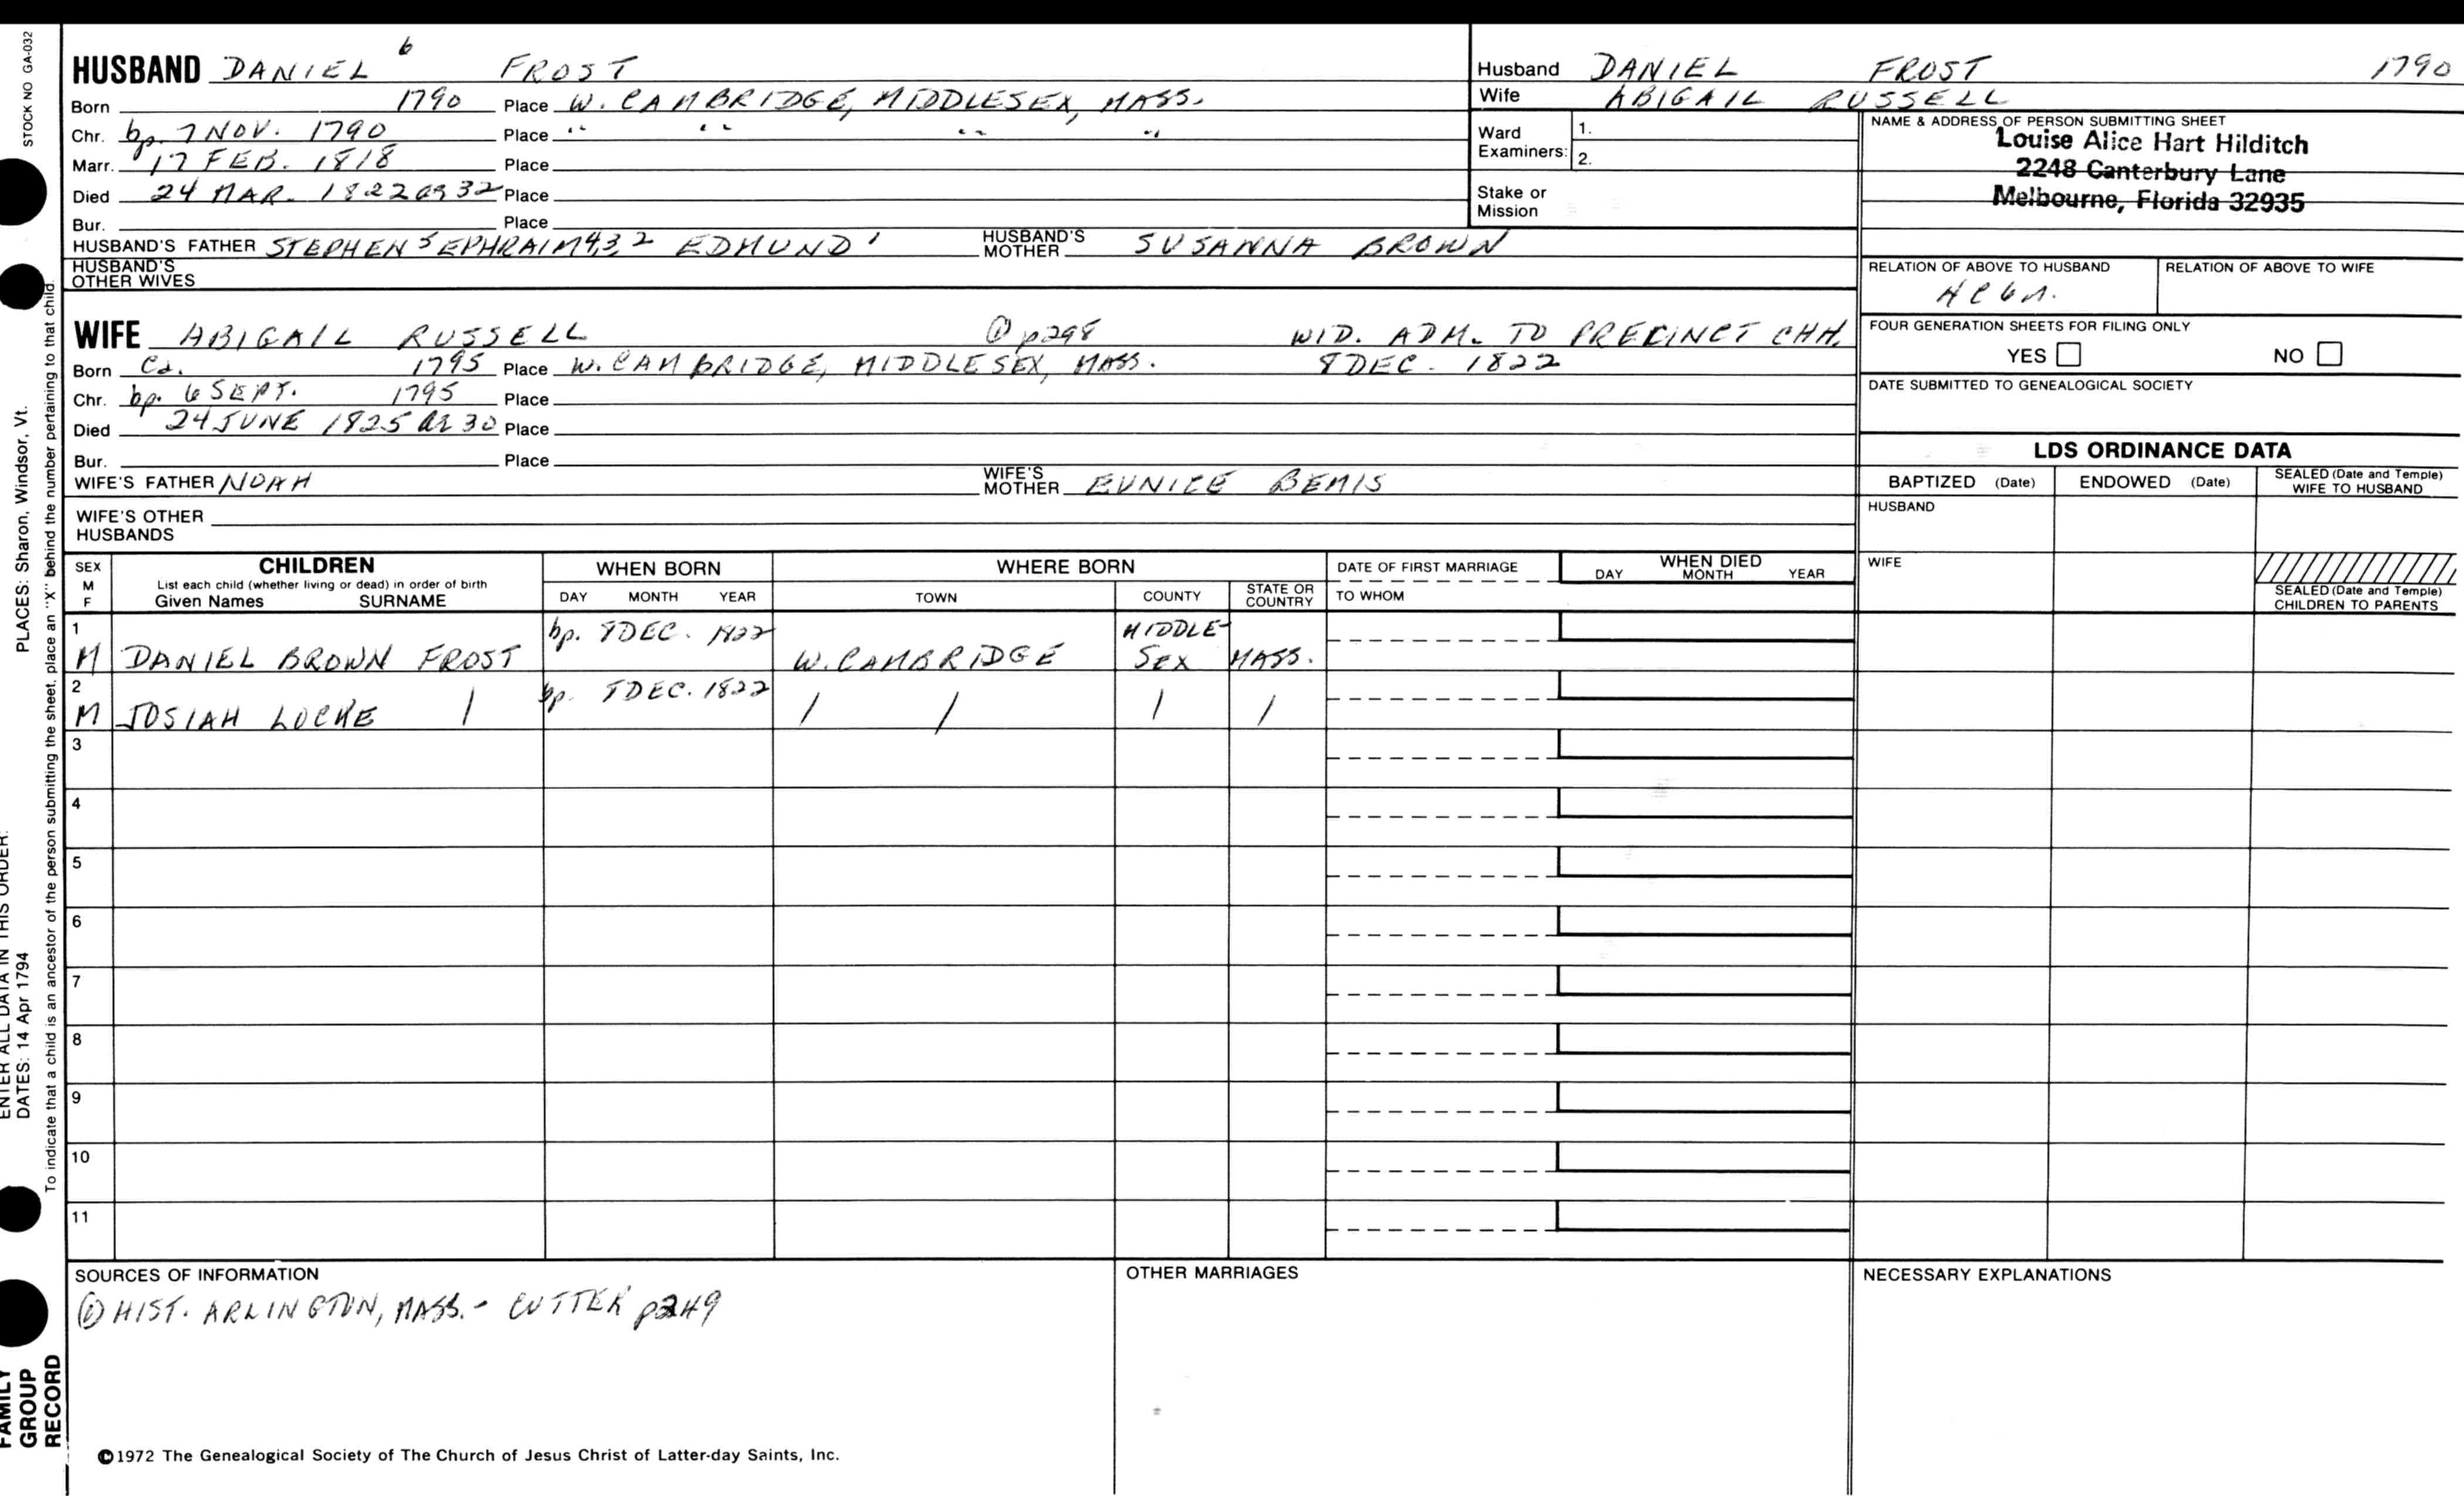 STOCK NO GA-032
HUSBAND DANIEL 6 FROST
Born 1790 Place W. CAMBRIDGE, MIDDLESEX, MASS.
Chr. bp. 7 NOV. 1790 Place " " " "
Marr. 17 FEB. 1818 Place
Died 24 MAR. 1822 ag 32 Place
Bur. Place
HUSBAND'S FATHER STEPHEN 5 EPHRAIM 4,3,2 EDMUND 1 HUSBAND'S MOTHER SUSANNA BROWN
HUSBAND'S OTHER WIVES
Husband DANIEL FROST 1790
Wife ABIGAIL RUSSELL
Ward Examiners: 1.
2.
Stake or Mission
NAME & ADDRESS OF PERSON SUBMITTING SHEET
Louise Alice Hart Hilditch
2248 Canterbury Lane
Melbourne, Florida 32935
RELATION OF ABOVE TO HUSBAND RELATION OF ABOVE TO WIFE
FOUR GENERATION SHEETS FOR FILING ONLY
YES NO
DATE SUBMITTED TO GENEALOGICAL SOCIETY
WIFE ABIGAIL RUSSELL ① p298 WID. ADM. TO PRECINCT CHH.
Born Ca. 1795 Place W. CAMBRIDGE, MIDDLESEX, MASS. 8 DEC. 1822
Chr. bp. 6 SEPT. 1795 Place
Died 24 JUNE 1825 ae 30 Place
Bur. Place
WIFE'S FATHER NOAH WIFE'S MOTHER EUNICE BEMIS
WIFE'S OTHER HUSBANDS
LDS ORDINANCE DATA
BAPTIZED (Date) ENDOWED (Date) SEALED (Date and Temple) WIFE TO HUSBAND
HUSBAND
WIFE
SEALED (Date and Temple) CHILDREN TO PARENTS
SEX M F CHILDREN
List each child (whether living or dead) in order of birth
Given Names SURNAME
WHEN BORN
DAY MONTH YEAR
WHERE BORN
TOWN COUNTY STATE OR COUNTRY
DATE OF FIRST MARRIAGE
TO WHOM
WHEN DIED
DAY MONTH YEAR
1 M DANIEL BROWN FROST bp. 8 DEC. 1822 W. CAMBRIDGE MIDDLE-SEX MASS.
2 M JOSIAH LOCKE / bp. 8 DEC. 1822 / / / /
3
4
5
6
7
8
9
10
11
SOURCES OF INFORMATION
① HIST. ARLINGTON, MASS. - CUTTER p249
OTHER MARRIAGES
NECESSARY EXPLANATIONS
©1972 The Genealogical Society of The Church of Jesus Christ of Latter-day Saints, Inc.
FAMILY GROUP RECORD
ENTER ALL DATA IN THIS ORDER:
DATES: 14 Apr 1794
PLACES: Sharon, Windsor, Vt.
To indicate that a child is an ancestor of the person submitting the sheet, place an "X" behind the number pertaining to that child.